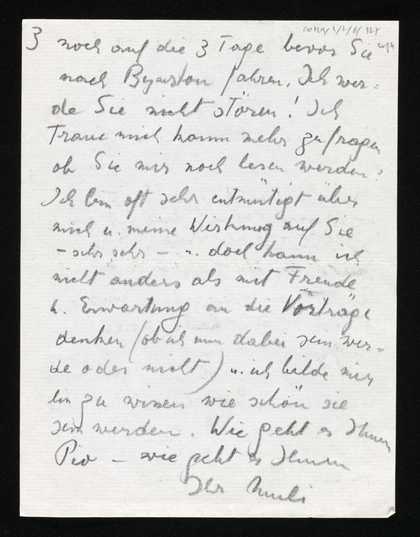 3 noch auf die 3 Tage bevor Sie
nach Bryanston fahren. Ich wer-
de Sie nicht stören! Ich
traue mich kaum mehr zu fragen
ob Sie mir noch lesen werden?
Ich bin oft sehr entmutigt über
mich u. meine Wirkung auf Sie
– sehr, sehr – u. doch kann ich
nicht anders als mit Freude
u. Erwartung an die Vorträge
denken (ob ich nun dabei sein wer-
de oder nicht) u. ich bilde mir
ein zu wissen wie schön sie
sein werden. Wie geht es Ihnen
– wie geht es Ihnen
Ihr